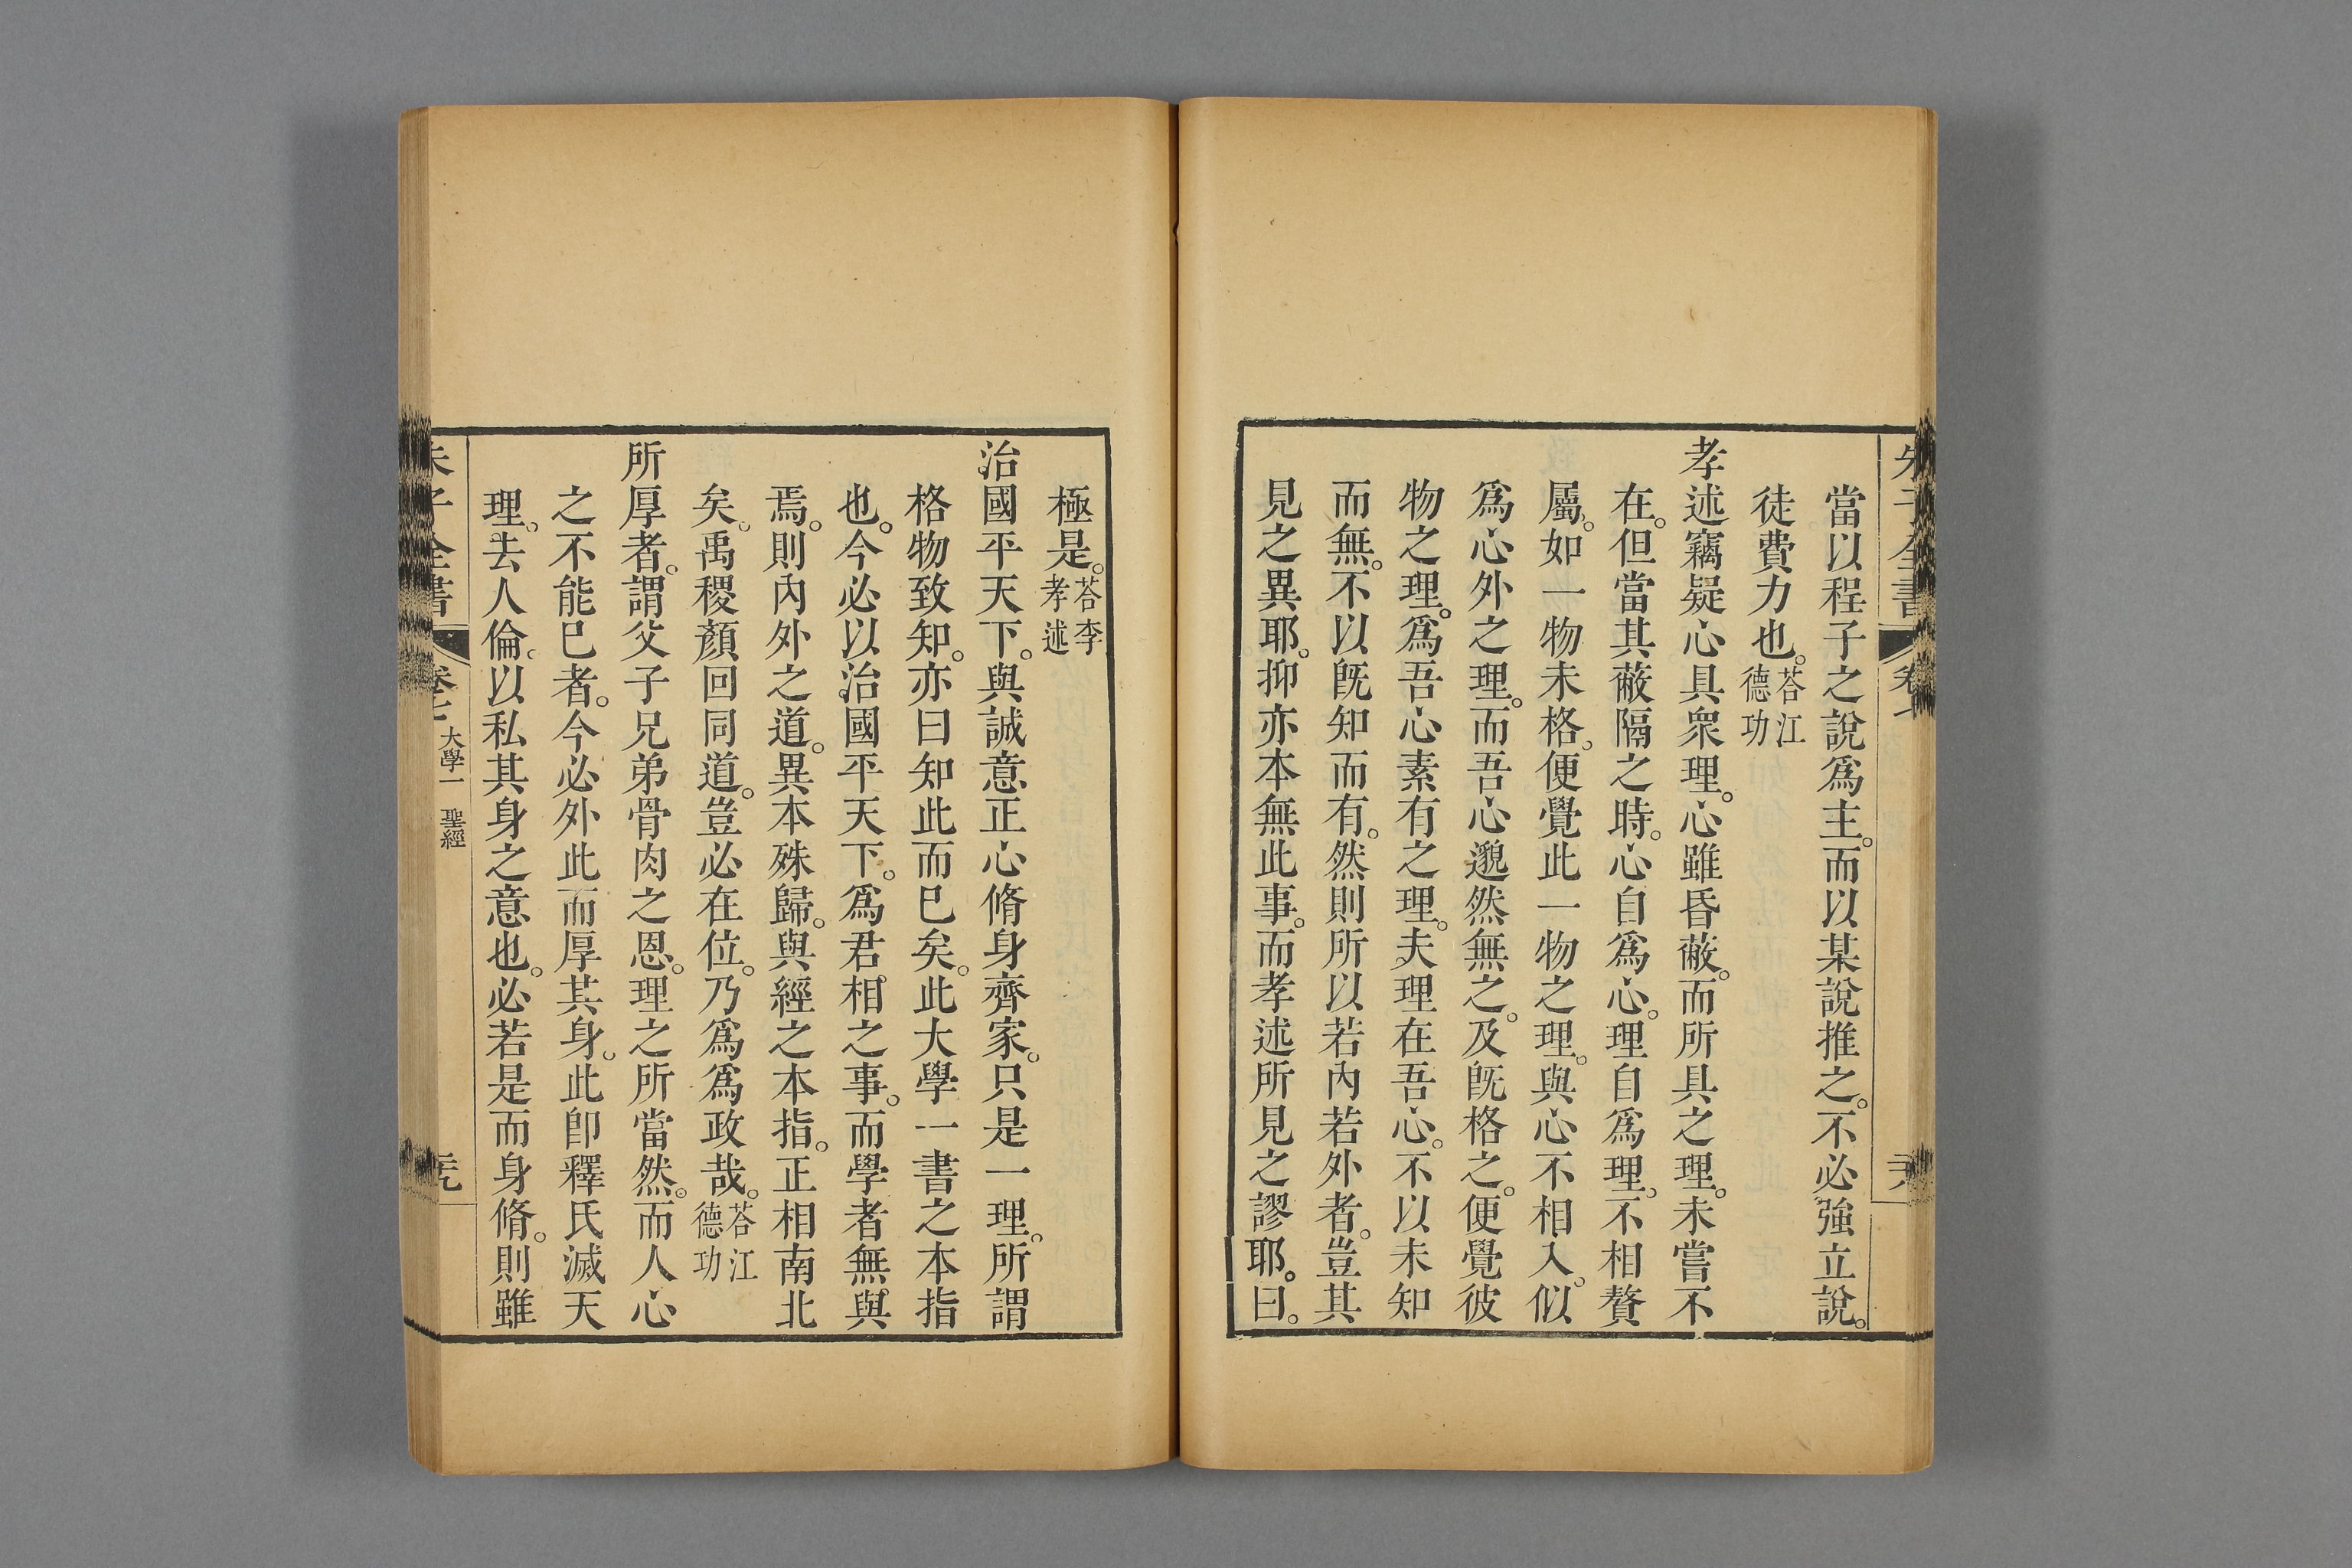 當以程子之說爲主。而以某說推之。不必強立說。
徒費力也。荅江德功
孝述竊疑心具衆理。心雖昏蔽。而所具之理。未嘗不
在。但當其蔽隔之時。心自爲心。理自爲理。不相贅
屬。如一物未格。便覺此一物之理。與心不相入。似
爲心外之理。而吾心邈然無之。及旣格之。便覺彼
物之理。爲吾心素有之理。夫理在吾心。不以未知
而無。不以旣知而有。然則所以若內若外者。豈其
見之異耶。抑亦本無此事。而孝述所見之謬耶。曰。
極是。荅李孝述
治國平天下。與誠意正心脩身齊家。只是一理。所謂
格物致知。亦曰知此而已矣。此大學一書之本指
也。今必以治國平天下。爲君相之事。而學者無與
焉。則內外之道。異本殊歸。與經之本指。正相南北
矣。禹稷顏回同道。豈必在位。乃爲爲政哉。荅江德功
所厚者。謂父子兄弟骨肉之恩。理之所當然。而人心
之不能已者。今必外此而厚其身。此卽釋氏滅天
理。去人倫。以私其身之意也。必若是而身脩。則雖
朱子全書 卷七 大學一 聖經 二九